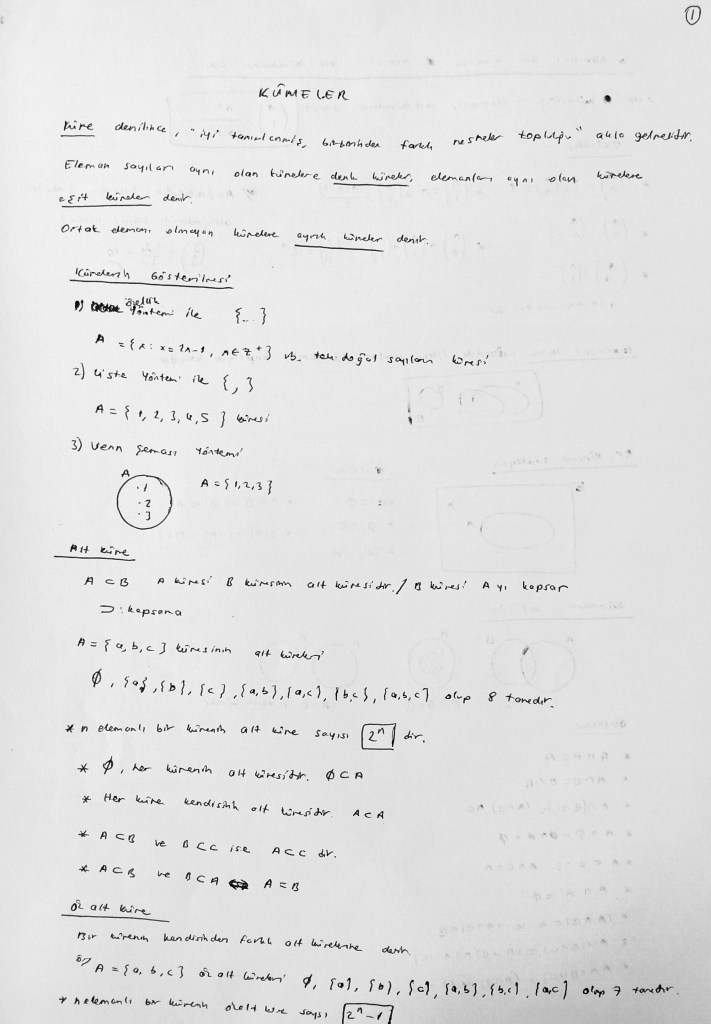 1
KÜMELER
Küme denilince, "iyi tanımlanmış, birbirinden farklı nesneler topluluğu" akla gelmelidir.
Eleman sayıları aynı olan kümelere denk kümeler, elemanları aynı olan kümelere
eşit kümeler denir.
Ortak elemanı olmayan kümelere ayrık kümeler denir.
Kümelerin Gösterilmesi
1) özellik yöntemi ile {...}
A = {x: x = 2n-1, n ∈ Z⁺} tek doğal sayıların kümesi
2) Liste yöntemi ile { , }
A = { 1, 2, 3, 4, 5 } kümesi
3) Venn Şeması Yöntemi
A
.1
.2
.3
A = {1,2,3}
Alt küme
A ⊂ B A kümesi B kümesinin alt kümesidir. / B kümesi A yı kapsar
⊃: kapsama
A = {a, b, c} kümesinin alt kümeleri
∅, {a}, {b}, {c}, {a,b}, {a,c}, {b,c}, {a,b,c} olup 8 tanedir.
* n elemanlı bir kümenin alt küme sayısı 2ⁿ dir.
* ∅, her kümenin alt kümesidir. ∅ ⊂ A
* Her küme kendisinin alt kümesidir. A ⊂ A
* A ⊂ B ve B ⊂ C ise A ⊂ C dir.
* A ⊂ B ve B ⊂ A ⇔ A = B
Öz alt küme
Bir kümenin kendisinden farklı alt kümelerine denir.
Ör/ A = {a, b, c} öz alt kümeleri ∅, {a}, {b}, {c}, {a,b}, {b,c}, {a,c} olup 7 tanedir.
* n elemanlı bir kümenin özalt küme sayısı 2ⁿ-1